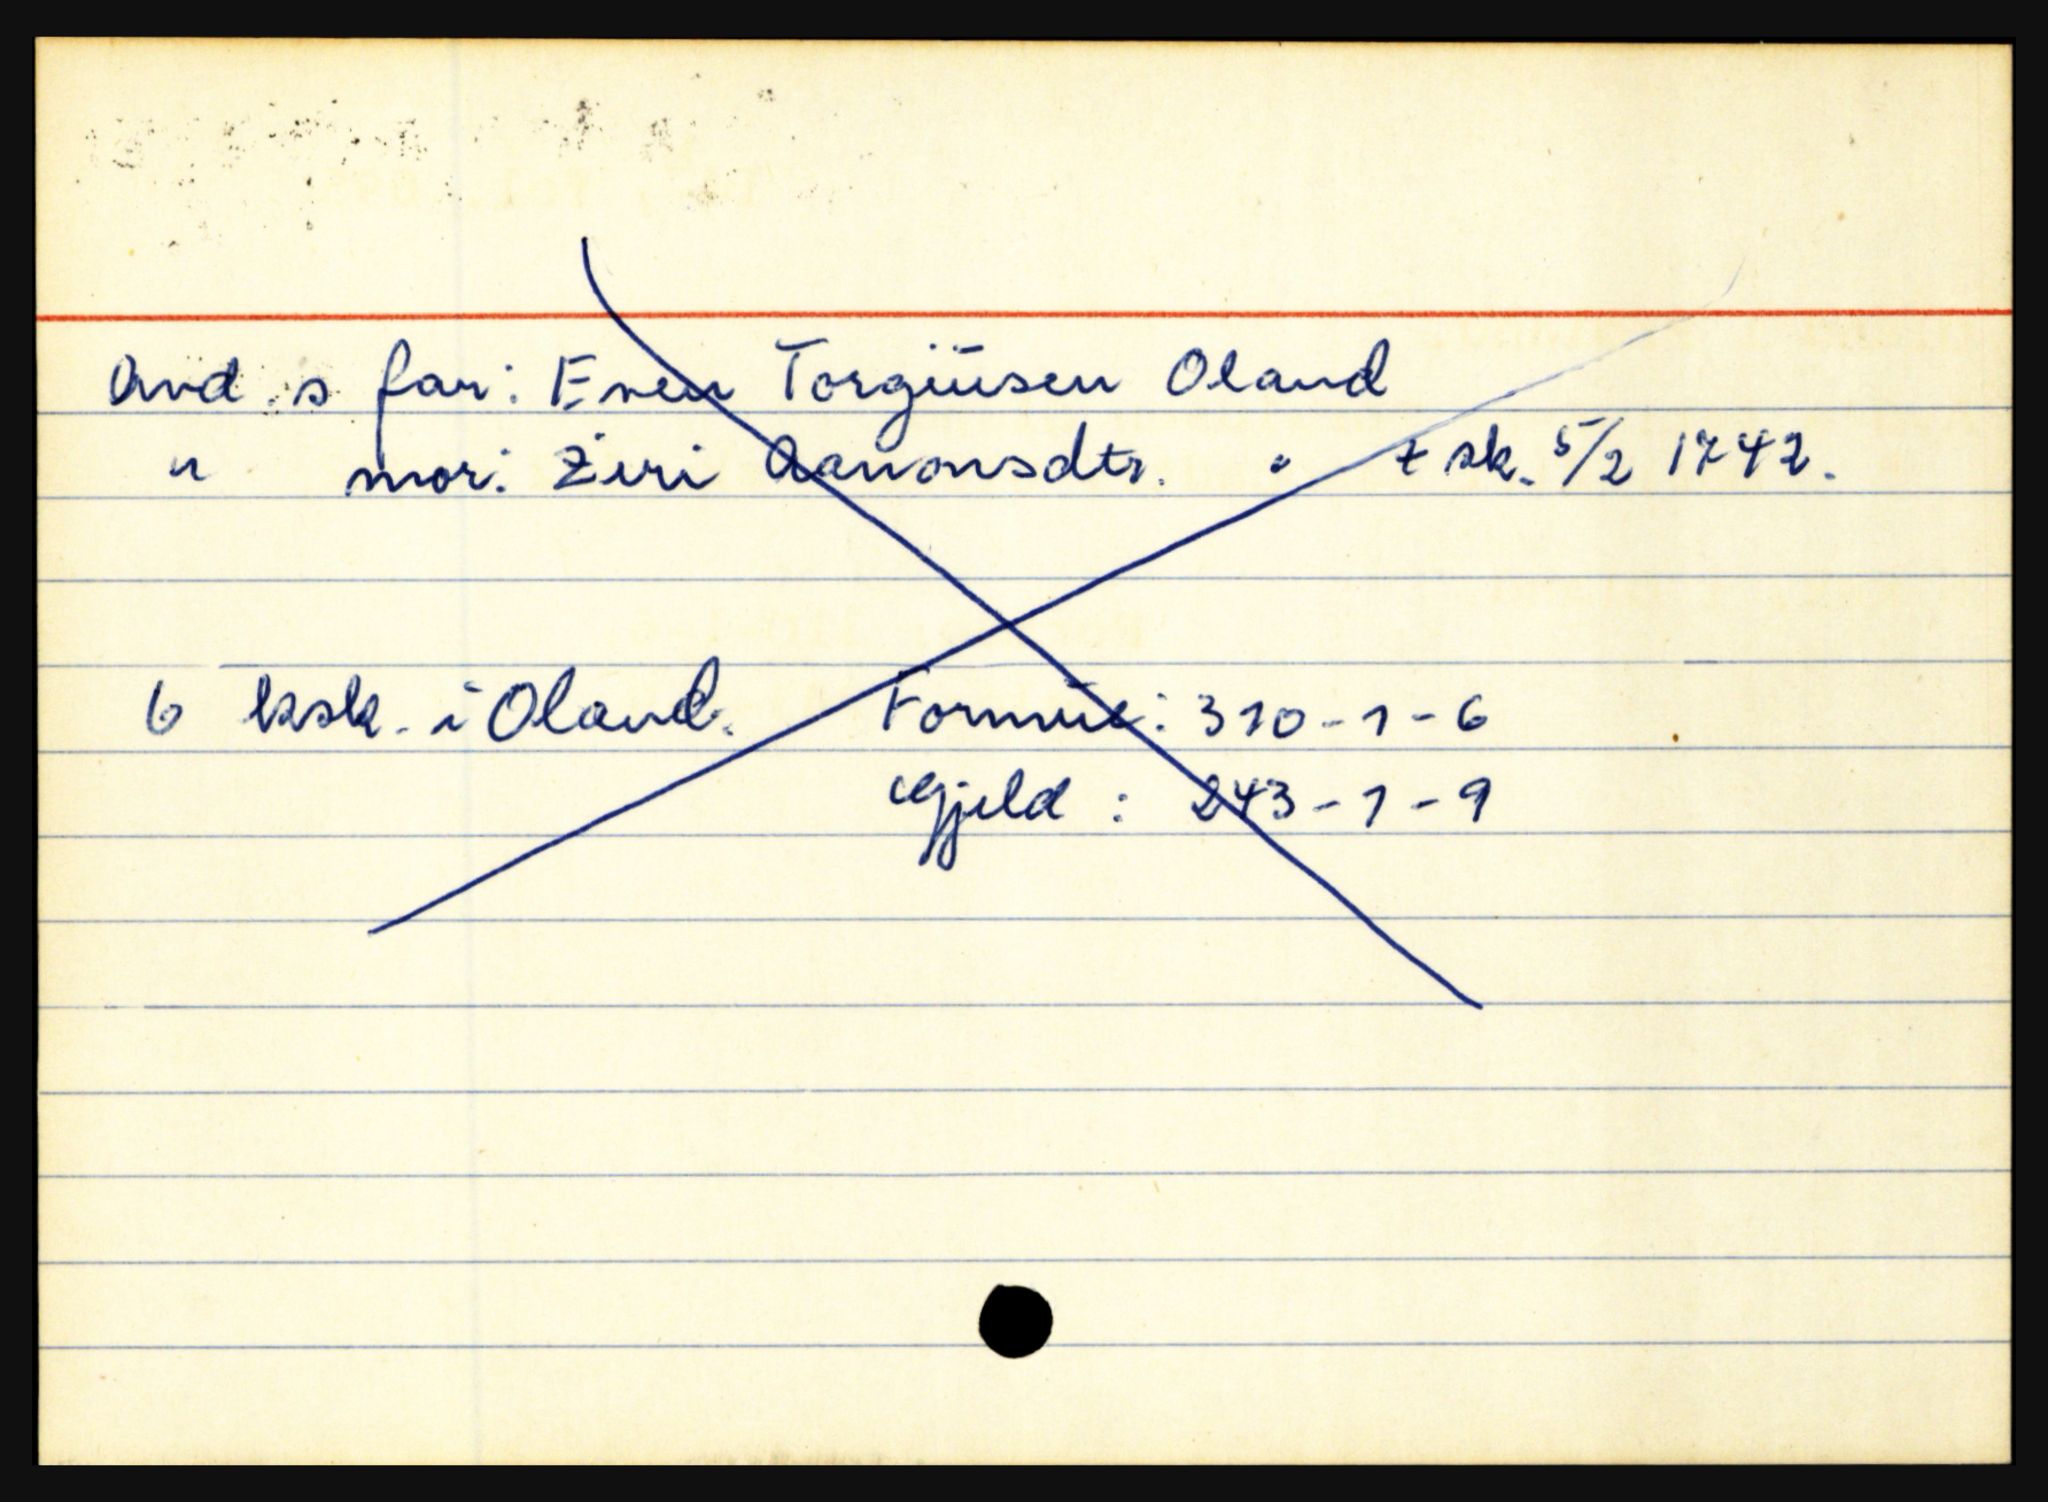 Avd. s far: Even Torgiusen Oland
" mor: Ziri Aanonsdtr. " + sk. 5/2 1742.
6 ksk. i Oland. Formue: 310-1-6
Gjeld : 243-1-9